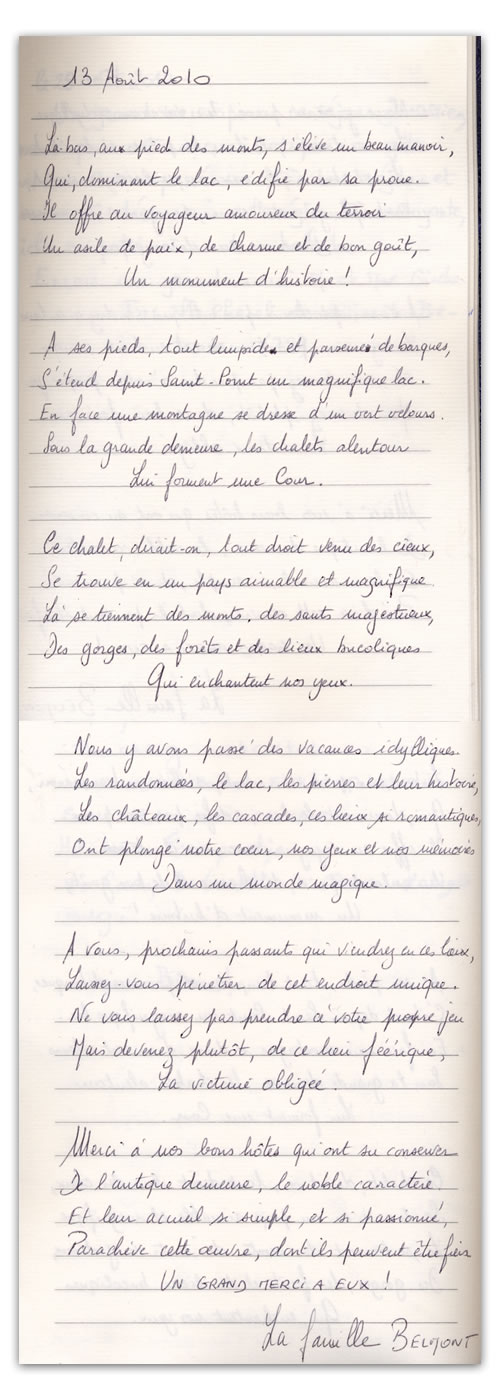 13 Août 2010
Là-bas, aux pied des monts, s'élève un beau manoir,
Qui, dominant le lac, édifie par sa proue.
Il offre au voyageur amoureux du terroir
Un asile de paix, de charme et de bon goût,
Un monument d'histoire !
A ses pieds, tout limpide et parsemé de barques,
S'étend depuis Saint-Point un magnifique lac.
En face une montagne se dresse d'un vert velours.
Sous la grande demeure, les chalets alentour
Lui forment une Cour.
Ce chalet, dirait-on, tout droit venu des cieux,
Se trouve en un pays aimable et magnifique
Là se tiennent des monts, des sauts majestueux,
Des gorges, des forêts et des lieux bucoliques
Qui enchantent nos yeux.
Nous y avons passé des vacances idylliques.
Les randonnées, le lac, les pierres et leur histoire,
Les châteaux, les cascades, ces lieux si romantiques,
Ont plongé notre cœur, nos yeux et nos mémoires
Dans un monde magique.
A vous, prochains passants qui viendrez en ces lieux,
Laissez-vous pénétrer de cet endroit unique.
Ne vous laissez pas prendre à votre propre jeu
Mais devenez plutôt, de ce lieu féérique,
La victime obligée.
Merci à nos bons hôtes qui ont su conserver
De l'antique demeure, le noble caractère.
Et leur accueil si simple, et si passionné,
Parachève cette œuvre, dont ils peuvent être fiers
UN GRAND MERCI A EUX !
La famille BELMONT